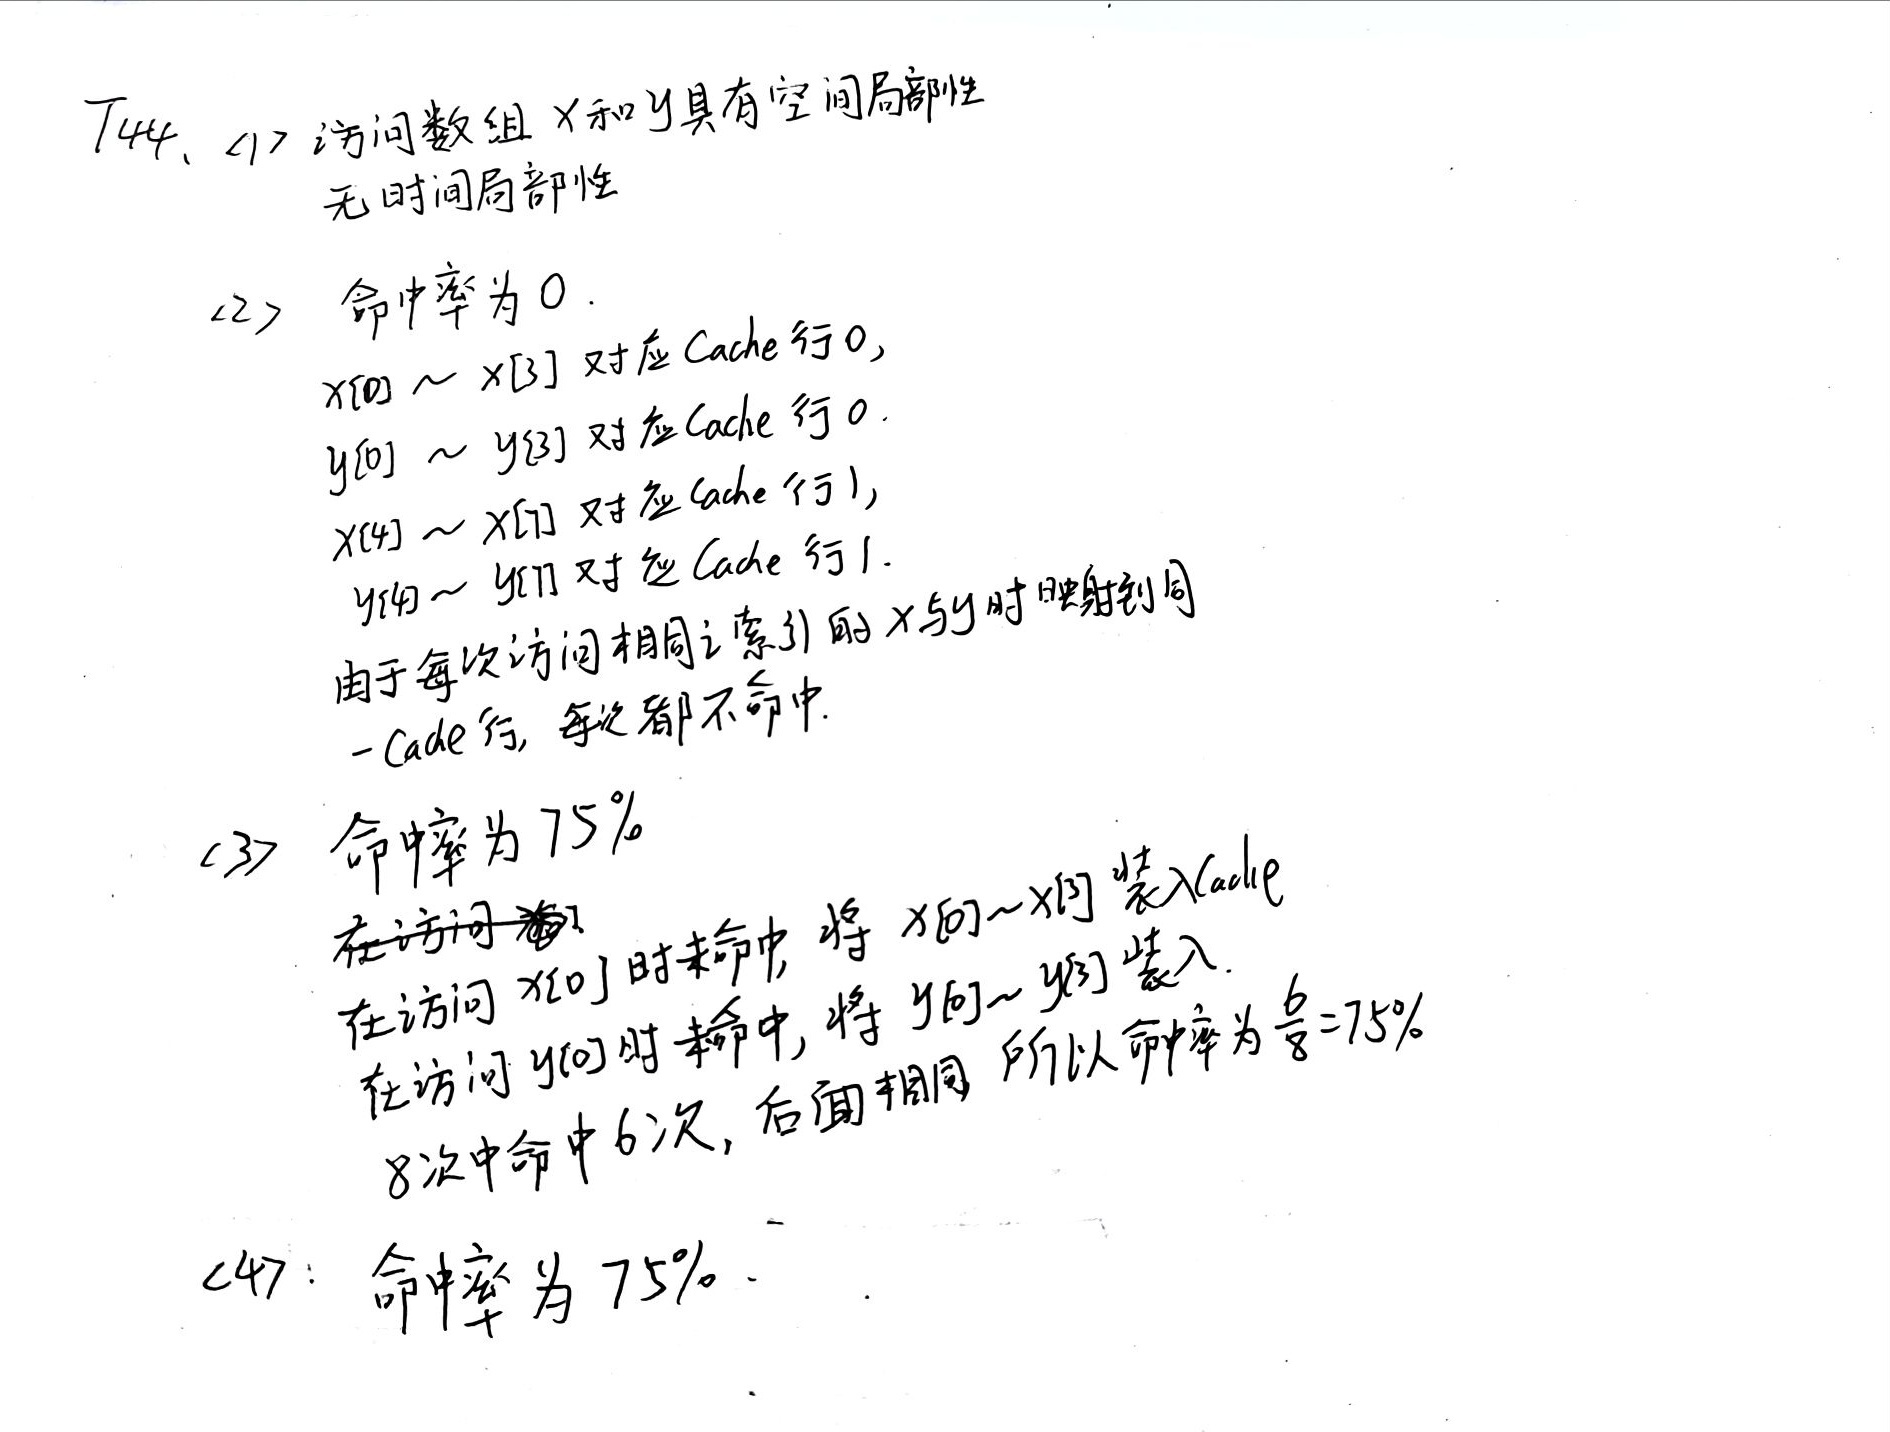 T44、<1> 访问数组 x和y具有空间局部性
无时间局部性
<2> 命中率为0.
x[0] ~ x[3] 对应Cache行0,
y[0] ~ y[3] 对应Cache行0.
x[4] ~ x[7] 对应Cache行1,
y[4] ~ y[7] 对应Cache行1.
由于每次访问相同i索引的x与y时映射到同
一Cache行, 每次都不命中.
<3> 命中率为75%
在访问
在访问 x[0] 时未命中, 将 x[0]~x[3] 装入Cache
在访问 y[0] 时未命中, 将 y[0]~y[3] 装入.
8次中命中6次, 后面相同 所以命中率为6/8=75%
<4>: 命中率为75%.